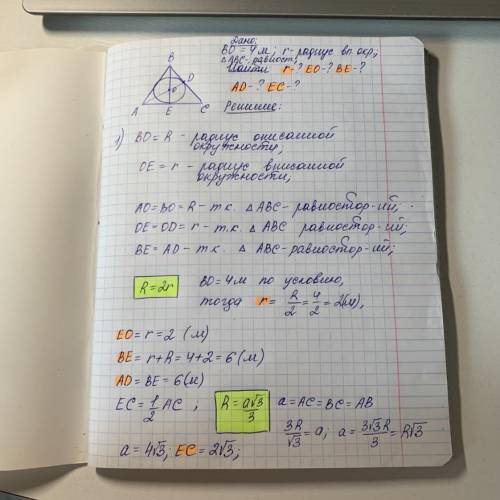 Дано:
BO = 4м; r - радиус вп. окр;
△ABC - равност;
Найти r-? EO-? BE-?
AD-? EC-?
Решение:
B
D
O
A E C
1) BO = R - радиус описанной
окружности;
OE = r - радиус вписанной
окружности;
AO = BO = R - т.к. △ ABC - равностор-ий;
OE = OD = r - т.к. △ ABC равностор-ий;
BE = AD - т.к. △ ABC - равностор-ий;
R = 2r BO = 4м по условию,
тогда r = R/2 = 4/2 = 2(м),
EO = r = 2 (м)
BE = r + R = 4 + 2 = 6 (м)
AD = BE = 6 (м)
EC = 1/2 AC ; R = a√3/3 a = AC = BC = AB
3R/√3 = a; a = 3√3R/3 = R√3
a = 4√3; EC = 2√3;